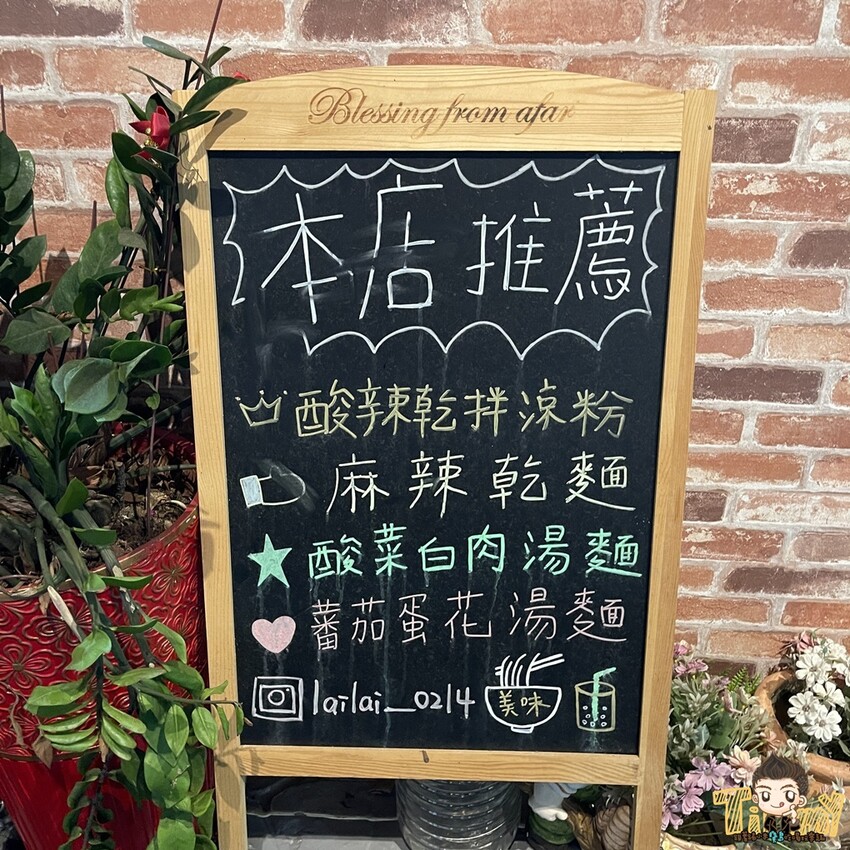 Blessing from afar
本店推薦
酸辣乾拌涼粉
麻辣乾麵
酸菜白肉湯麵
蕃茄蛋花湯麵
lailai_0214 美味